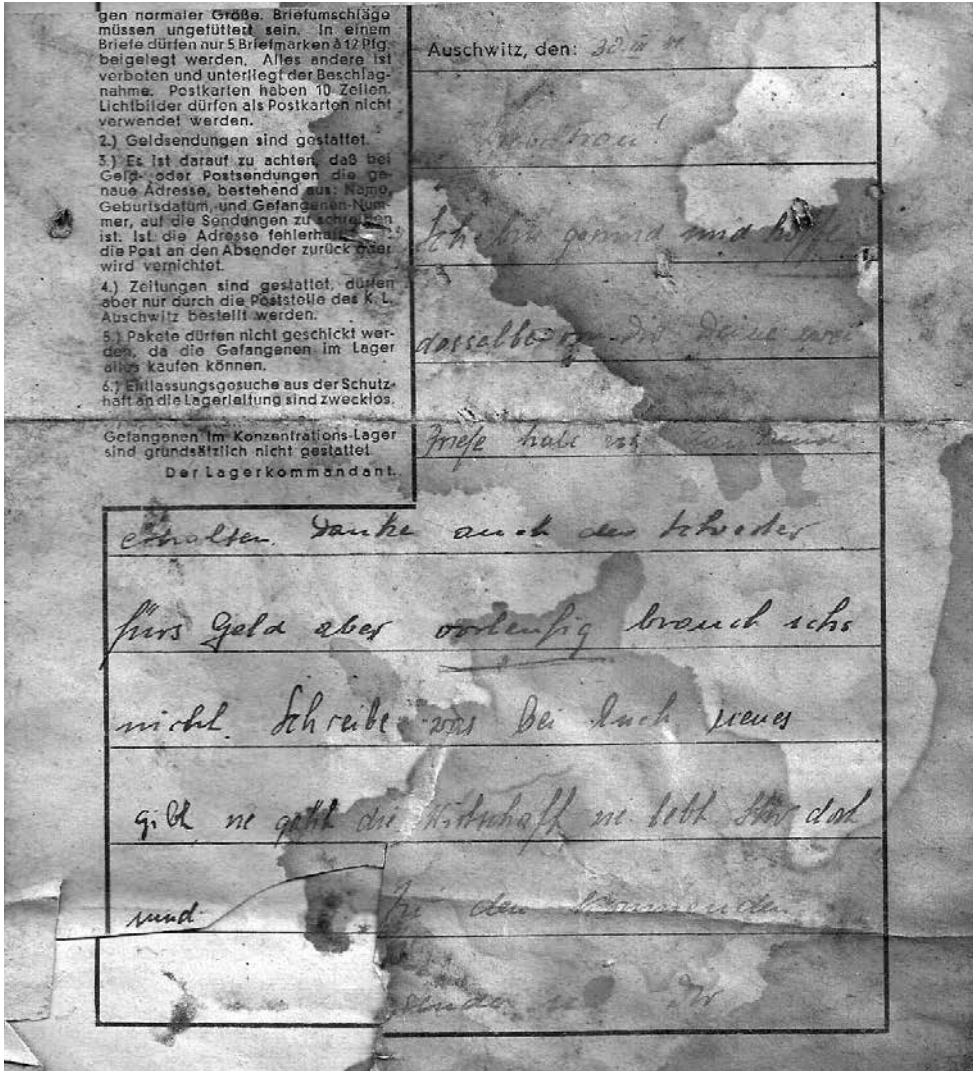 gen normaler Größe. Briefumschläge
müssen ungefüttert sein. In einem
Briefe dürfen nur 5 Briefmarken à 12 Pfg.
beigelegt werden. Alles andere ist
verboten und unterliegt der Beschlag-
nahme. Postkarten haben 10 Zeilen.
Lichtbilder dürfen als Postkarten nicht
verwendet werden.
2.) Geldsendungen sind gestattet.
3.) Es ist darauf zu achten, daß bei
Geld- oder Postsendungen die ge-
naue Adresse, bestehend aus: Name,
Geburtsdatum, und Gefangenen-Num-
mer, auf die Sendungen zu schreiben
ist. Ist die Adresse fehlerhaft,
die Post an den Absender zurück oder
wird vernichtet.
4.) Zeitungen sind gestattet, dürfen
aber nur durch die Poststelle des K. L.
Auschwitz bestellt werden.
5.) Pakete dürfen nicht geschickt wer-
den, da die Gefangenen im Lager
alles kaufen können.
6.) Entlassungsgesuche aus der Schutz-
haft an die Lagerleitung sind zwecklos.
Gefangenen im Konzentrations-Lager
sind grundsätzlich nicht gestattet.
Der Lagerkommandant.
Auschwitz, den:
Ich bin gesund und
dasselbe von dir Deine
Briefe habe
erhalten. Danke auch der
fürs Geld aber vorleufig brauch ichs
nicht. Schreibe was bei Euch neues
gibt die Wirtschaft lebt dort
und den kommenden